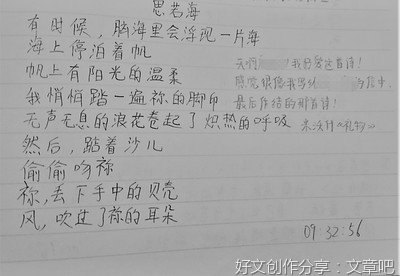 思若海
有时候，脑海里会浮现一片海
海上停泊着帆
帆上有阳光的温柔
我悄悄踏一遍祢的脚印
无声无息的浪花卷起了炽热的呼吸
然后，踮着沙儿
偷偷吻祢
祢，丢下手中的贝壳
风，吹过了祢的耳朵
天啊 我好爱这首诗！
感觉很像我写给 与信中，
最后作结的那首诗！
《礼物》
09 32:56
好文创作分享：文章吧